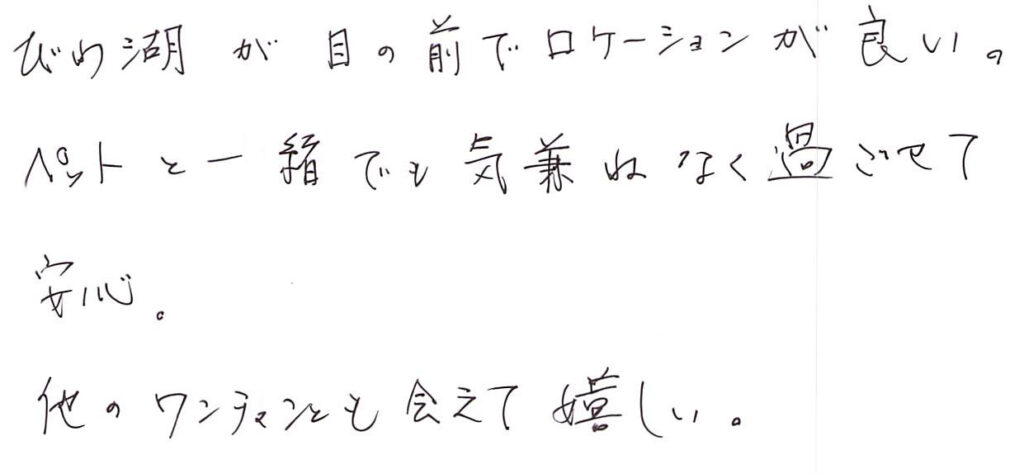 びわ湖が目の前でロケーションが良い。
ペットと一緒でも気兼ねなく過ごせて
安心。
他のワンチャンとも会えて嬉しい。